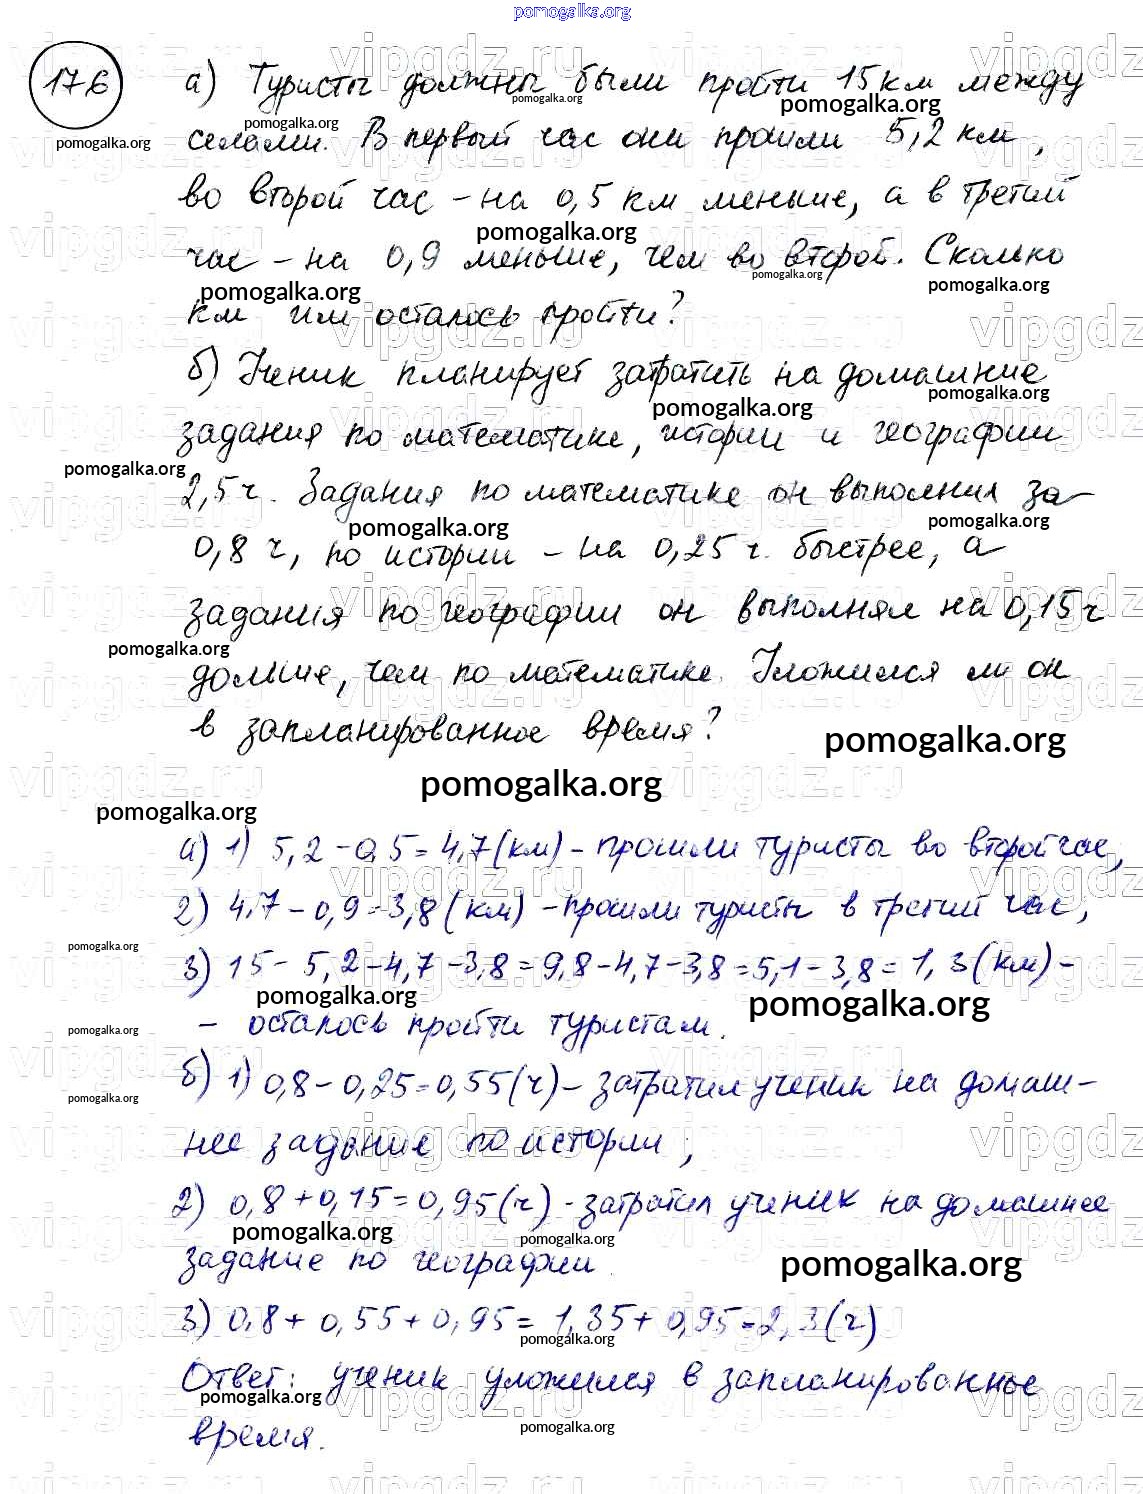 pomogalka.org
176
а) Туристы должны были пройти 15 км между
селами. В первый час они прошли 5,2 км,
во второй час – на 0,5 км меньше, а в третий
час – на 0,9 меньше, чем во второй. Сколько
км им осталось пройти?
б) Ученик планирует затратить на домашние
задания по математике, истории и географии
2,5 ч. Задания по математике он выполнил за
0,8 ч, по истории – на 0,25 ч. быстрее, а
задания по географии он выполнял на 0,15 ч
дольше, чем по математике. Уложился ли он
в запланированное время?
а) 1) 5,2 - 0,5 = 4,7 (км) – прошли туристы во второй час,
2) 4,7 - 0,9 = 3,8 (км) – прошли туристы в третий час,
3) 15 - 5,2 - 4,7 - 3,8 = 9,8 - 4,7 - 3,8 = 5,1 - 3,8 = 1,3 (км) –
– осталось пройти туристам.
б) 1) 0,8 - 0,25 = 0,55 (ч) – затратил ученик на домаш-
нее задание по истории;
2) 0,8 + 0,15 = 0,95 (ч) - затратил ученик на домашнее
задание по географии.
3) 0,8 + 0,55 + 0,95 = 1,35 + 0,95 = 2,3 (ч)
Ответ: ученик уложился в запланированное
время.